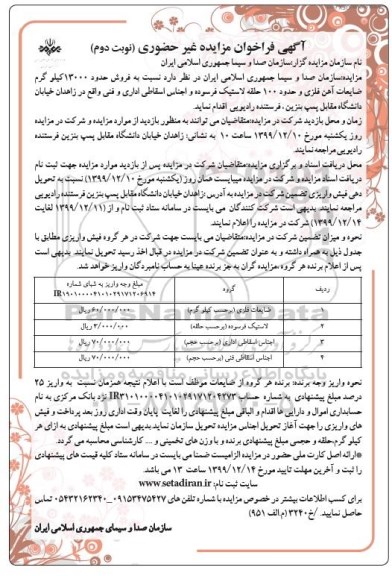 آگهی فراخوان مزایده غیر حضوری (نوبت دوم)
نام سازمان مزایده گزار:سازمان صدا و سیما جمهوری اسلامی ایران
مزایده:سازمان صدا و سیما جمهوری اسلامی ایران در نظر دارد نسبت به فروش حدود ۱۳۰۰۰کیلو گرم
ضایعات آهن فلزی و حدود ۱۰۰ حلقه لاستیک فرسوده و اجناس اسقاطی اداری و فنی واقع در زاهدان خیابان
دانشگاه مقابل پمپ بنزین ، فرستنده رادیویی اقدام نماید.
زمان و محل بازدید شرکت در مزایده:متقاضیان می توانند به منظور بازدید از موارد مزایده و شرکت در مزایده
روز یکشنبه مورخ ۱۳۹۹/۱۲/۱۰ ساعت ۱۰ به نشانی: زاهدان خیابان دانشگاه مقابل پمپ بنزین فرستنده
رادیویی مراجعه نمایند.
محل دریافت اسناد و برگزاری مزایده:متقاضیان شرکت در مزایده پس از بازدید موارد مزایده جهت ثبت نام
دریافت اسناد مزایده و شرکت در مزایده میبایست همان روز (یکشنبه مورخ ۱۳۹۹/۱۲/۱۰) نسبت به تحویل
دهی فیش واریزی تضمین شرکت در مزایده به آدرس :زاهدان خیابان دانشگاه مقابل پمپ بنزین فرستنده رادیویی
مراجعه نمایند. بدیهی است شرکت کنندگان می بایست در سامانه ستاد ثبت نام و از (۱۳۹۹/۱۲/۱۱ لغایت
۱۳۹۹/۱۲/۱۴) شرکت در مزایده را اعلام نمایند.
نحوه و میزان تضمین شرکت در مزایده:متقاضیان می بایست جهت شرکت در هر گروه فیش واریزی مطابق با
جدول ذیل به همراه داشته و به عنوان تضمین شرکت در مزایده در قبال اخذ رسید تحویل نمایند. بدیهی است
پس از اعلام برنده هر گروه ،مزایده گران به جز برنده عینا به حساب نامبردگان واریز خواهد شد.
ردیف گروه مبلغ وجه واریز به شبای شماره
۱ ضایعات فلزی (برحسب کیلو گرم) ۶۰/۰۰۰/۰۰۰ ریال
۲ لاستیک فرسوده (برحسب حلقه) ۳/۰۰۰/۰۰۰ ریال
۳ اجناس اسقاطی اداری (برحسب حجم) ۷۰/۰۰۰/۰۰۰ ریال
۴ اجناس اسقاطی فنی (برحسب حجم) ۷۰/۰۰۰/۰۰۰ ریال
نحوه واریز وجه برنده: برنده هر گروه از ضایعات موظف است با اعلام نتیجه همزمان نسبت به واریز ۲۵
درصد مبلغ پیشنهادی به شماره حساب نزد بانک مرکزی به نام
حسابداری اموال و دارایی ها اقدام و الباقی مبلغ پیشنهادی را لغایت پایان وقت اداری روز بعد پرداخت و فیش
های واریزی را جهت آغاز تحویل اجناس مزایده تحویل سازمان نماید.بدیهی است مبلغ پیشنهادی به ازای هر
کیلو گرم،حلقه و حجمی مبلغ پیشنهادی برنده و با وزن های تخمینی و ... کارشناسی محاسبه می گردد.
*ارائه اصل کارت ملی حضور در مزایده الزامیست ضمنا می بایست در سامانه ستاد کلیه قیمت های پیشنهادی
را ثبت و آخرین مهلت تایید مورخ ۱۳۹۹/۱۲/۱۴ ساعت ۱۳ می باشد.
سایت ثبت نام: www.setadiran.ir
برای کسب اطلاعات بیشتر در خصوص مزایده با شماره تلفن های ۰۹۱۵۳۴۷۵۴۲۷_۰۵۴۳۲۱۶۲۳۴۰ تماس
حاصل نمایید. /خ۳۲۴۰ (م الف ۹۵۱)
سازمان صدا و سیمای جمهوری اسلامی ایران